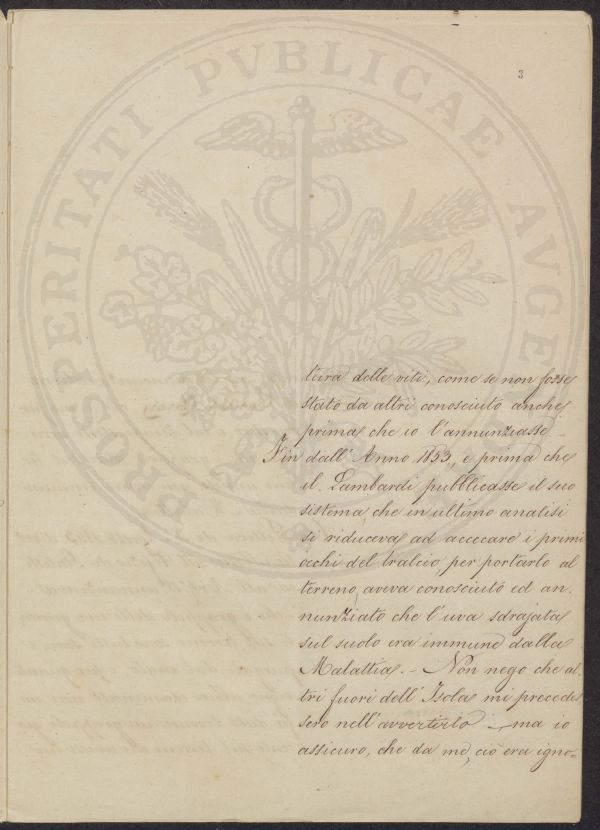 3
PROSPERITATI PVBLICAE AVGENDAE
tura delle viti, come se non fosse
stato da altri conosciuto anche
prima che io l'annunziasse —
Fin dall'Anno 1853, e prima che
il Lambardi pubblicasse il suo
sistema, che in ultimo analisi
si riduceva ad accecare i primi
occhi del tralcio per portarlo al
terreno, aveva conosciuto ed an-
nunziato che l'uva sdrajata
sul suolo era immune dalla
Malattia. — Non nego che al-
tri fuori dell'Isola mi precedes-
sero nell'avvertirlo — ma io
assicuro, che da me, ciò era igno=